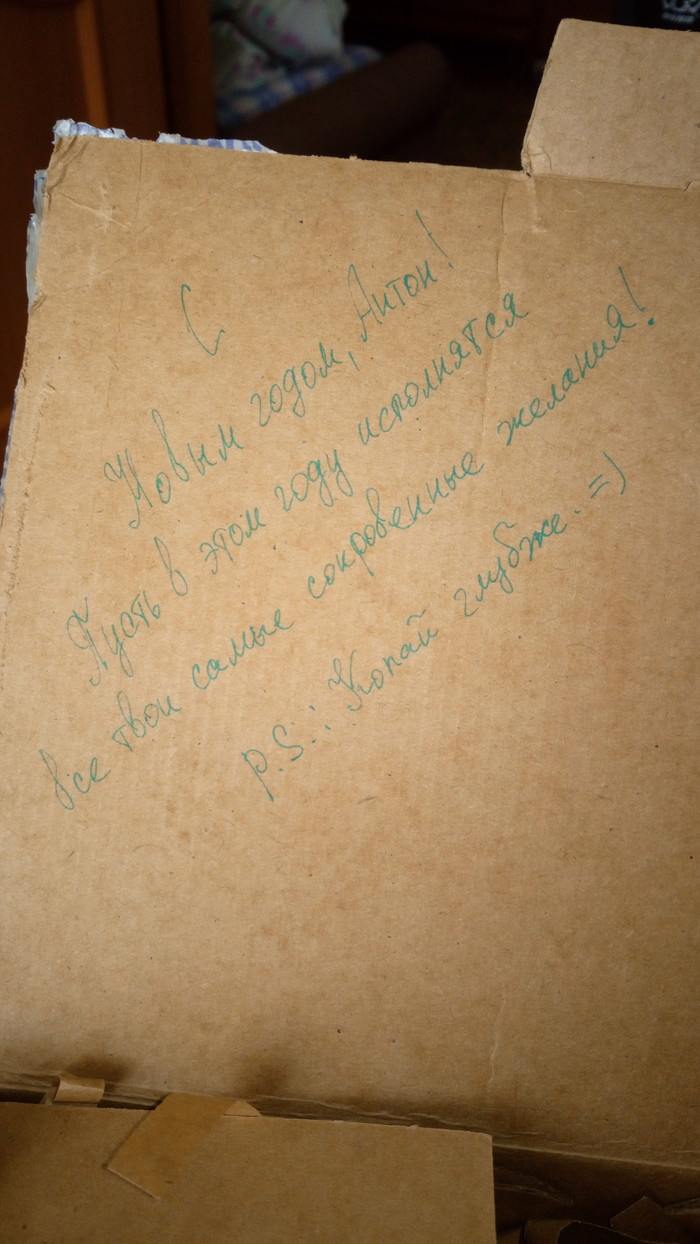 С
Новым годом, Антон!
Пусть в этом году исполнятся
все твои самые сокровенные желания!
P.S.: Копай глубже. =)